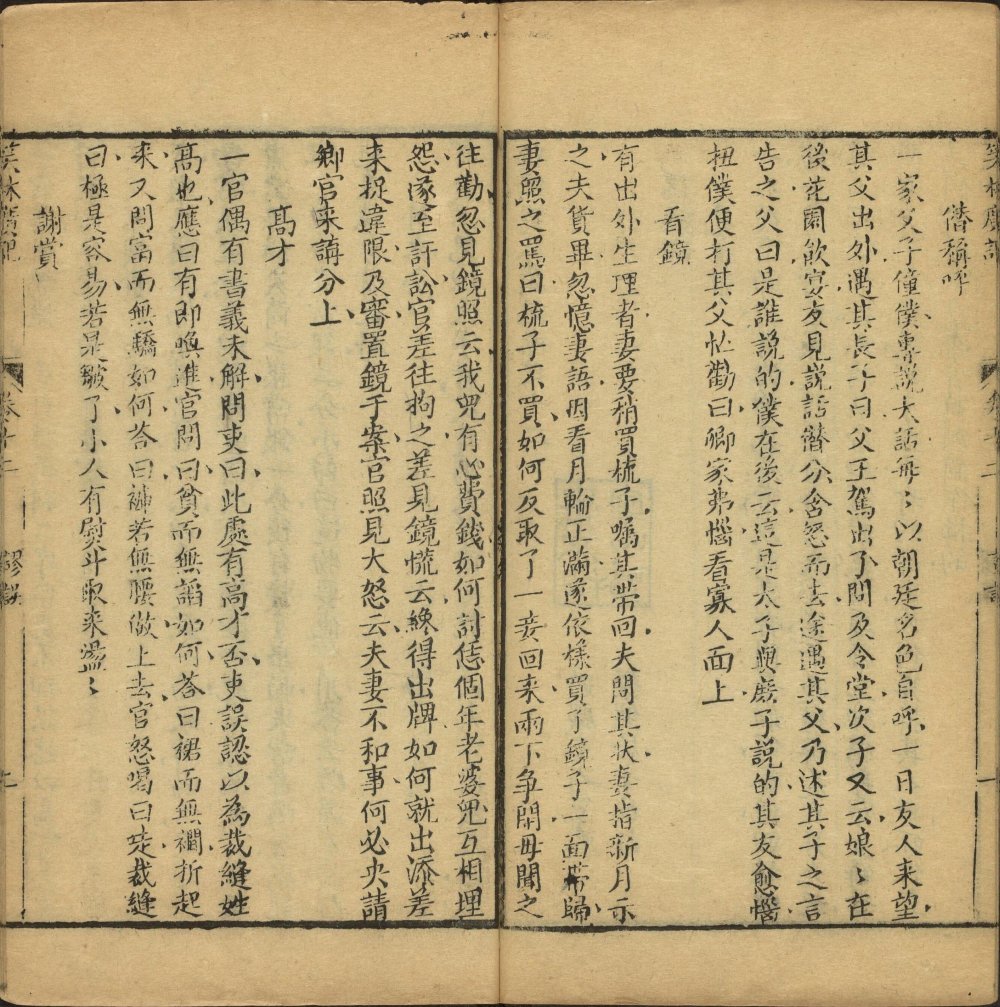 僭稱呼
一家父子僮僕專說大話每〻以朝廷名色自呼一日友人来望
其父出外遇其長子曰父王駕出了問及令堂次子又云娘〻在
後花園飲宴友見說話僭分含怒而去途遇其父乃述其子之言
告之父曰是誰說的僕在後云這是太子與庶子說的其友愈惱
扭僕便打其父忙勸曰卿家弗惱看寡人面上
看鏡
有出外生理者妻要稍買梳子囑其帶回夫問其状妻指新月示
之夫貨畢忽憶妻語因看月輪正滿遂依樣買了鏡子一面帶歸
妻照之罵曰梳子不買如何反取了一妾回来兩下争鬧母聞之
往勸忽見鏡照云我兒有心費錢如何討恁個年老婆兒互相埋
怨遂至訐訟官差往拘之差見鏡慌云纔得出牌如何就出添差
来捉違限及審置鏡于案官照見大怒云夫妻不和事何必央請
鄉官来講分上
高才
一官偶有書義未解問吏曰此處有高才否吏誤認以為裁縫姓
高也應曰有即喚進官問曰貧而無謟如何荅曰裙而無襉折起
来又問富而無驕如何荅曰褲若無腰做上去官怒喝曰唗裁縫
曰極是容易若是皺了小人有熨斗取来燙〻
謝賞
笑林廣記
卷十二
謬誤